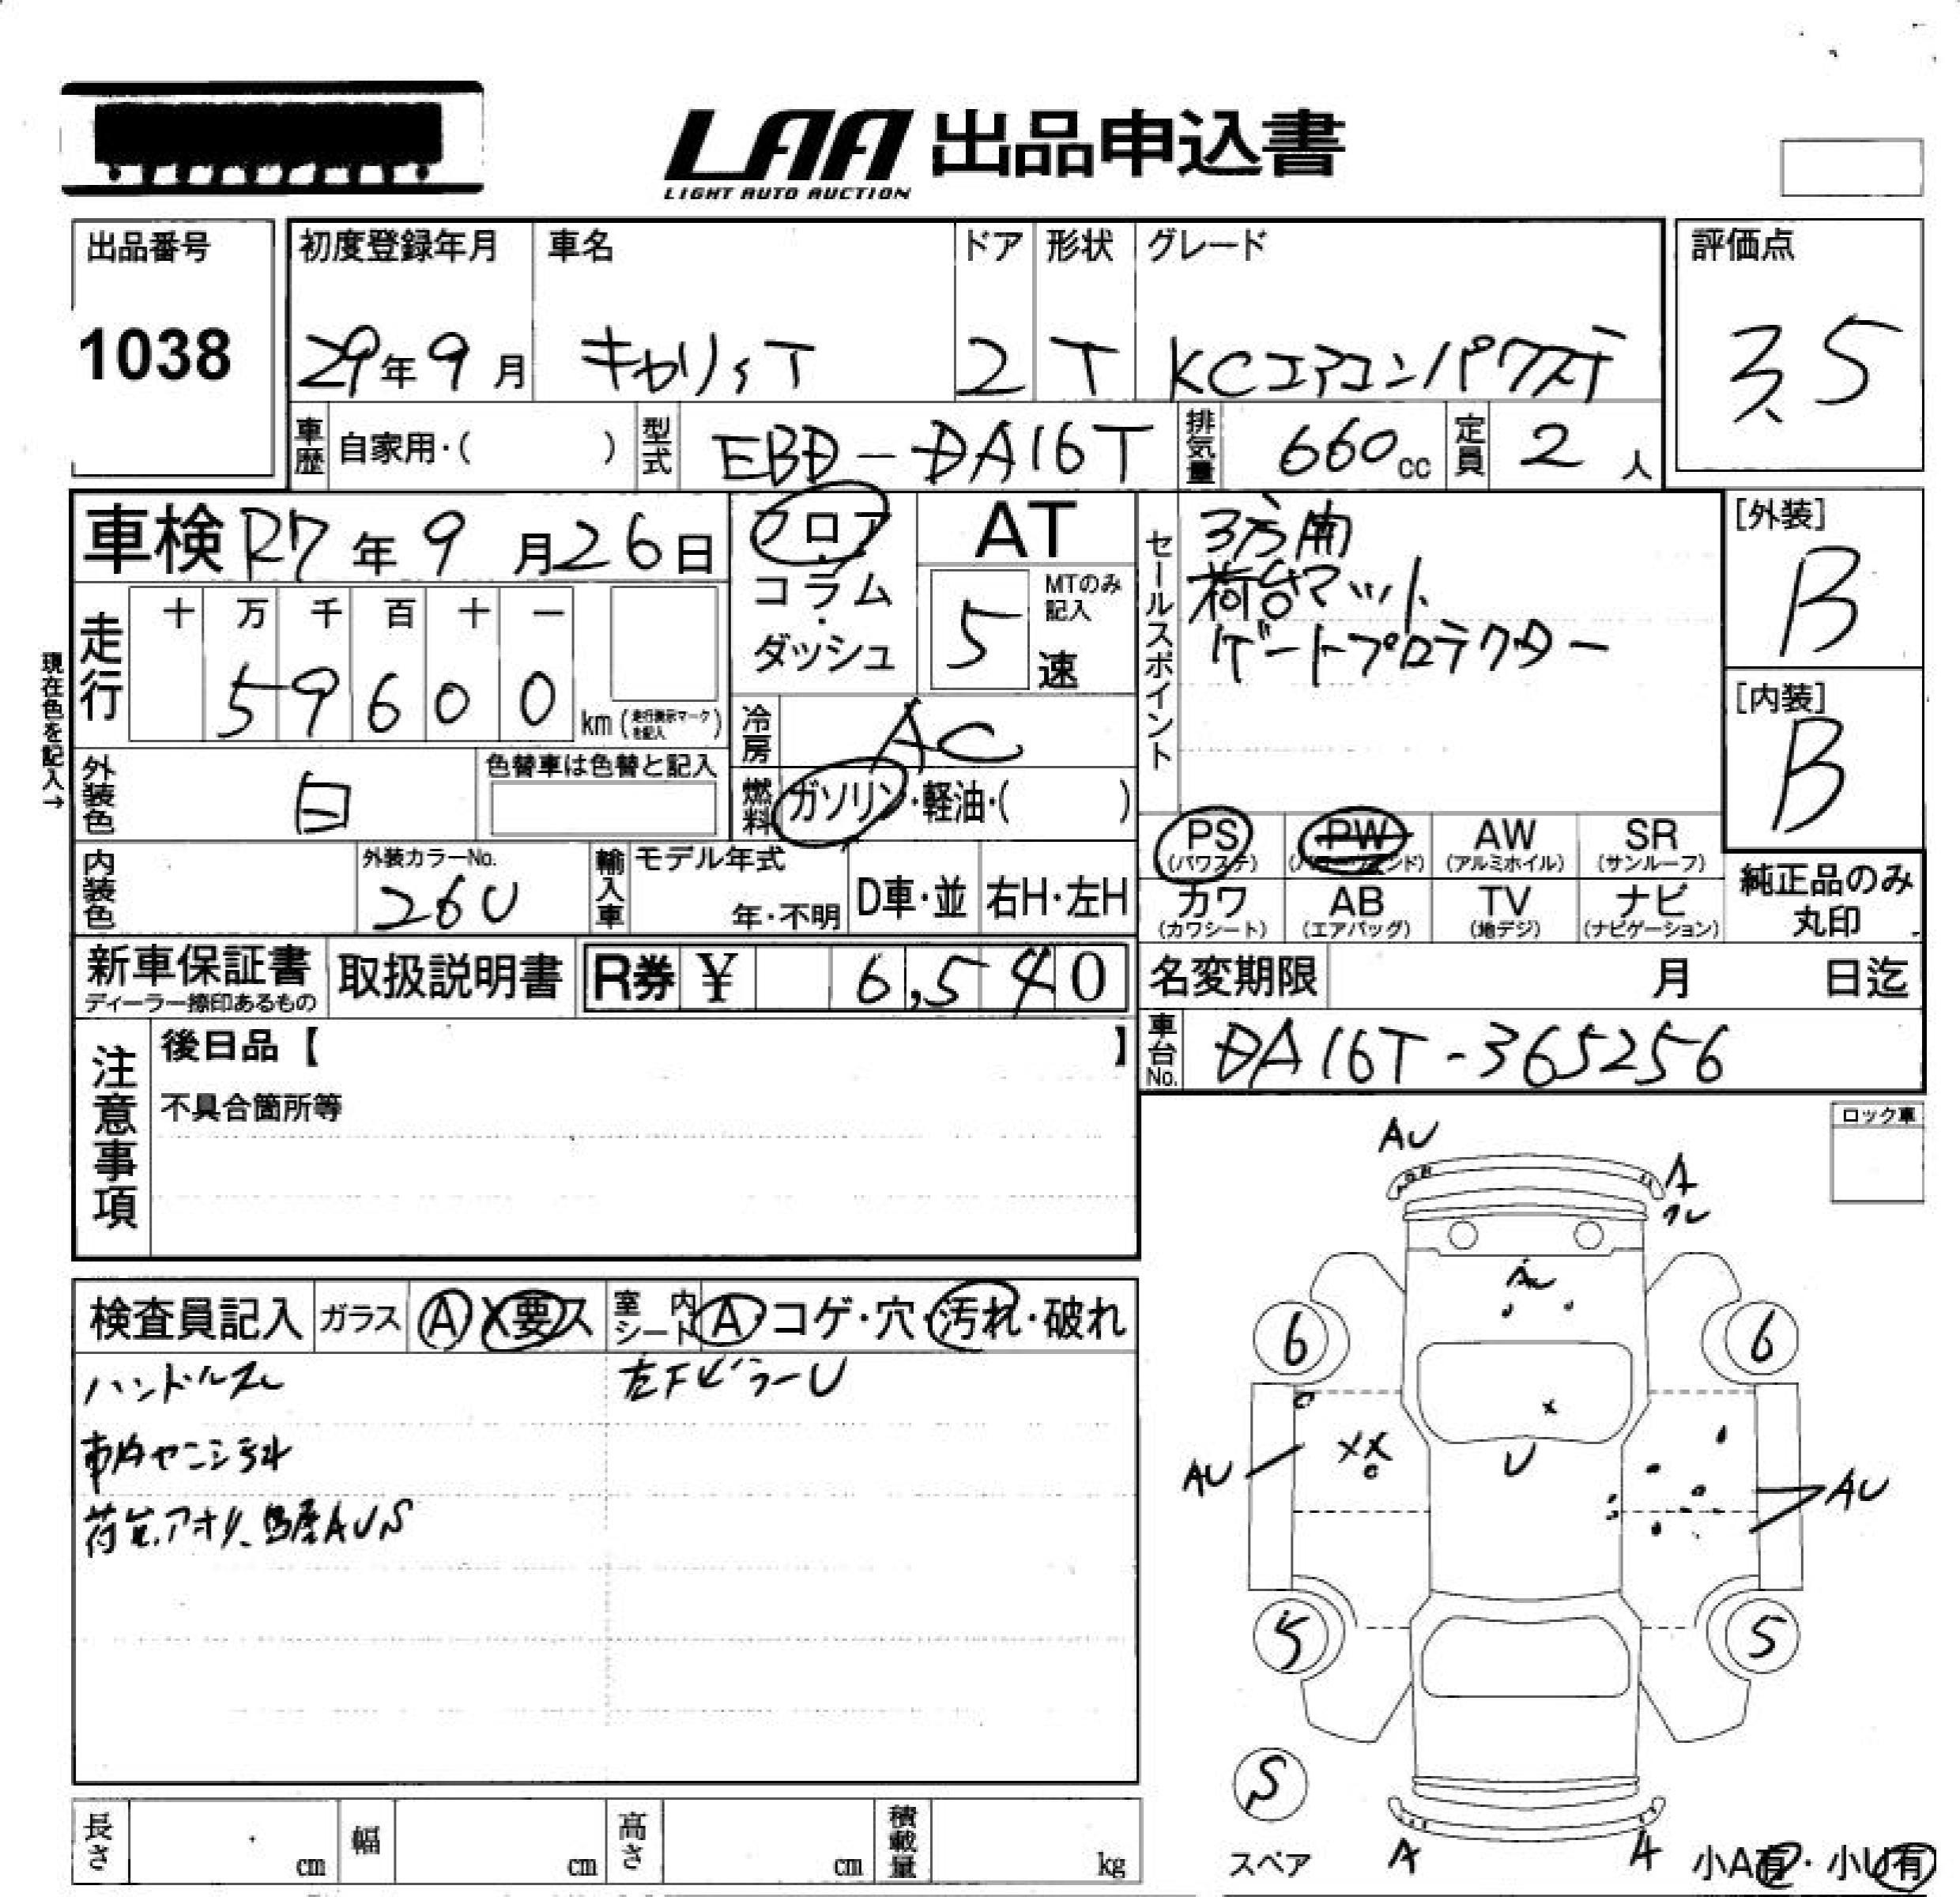 LAA 出品申込書
LIGHT AUTO AUCTION
出品番号
1038
初度登録年月
29年9月
車名
キャリィT
ドア
2
形状
T
グレード
KCエアコンパワステ
評価点
3.5
車歴 自家用・( )
型式 EBD-DA16T
排気量 660cc
定員 2人
車検 R7年9月26日
フロア・コラム・ダッシュ
AT
5速
MTのみ記入
セールスポイント
3方開
荷台マット
ゲートプロテクター
[外装]
B
[内装]
B
現在色を記入→
走行
十 万 千 百 十 一
5 9 6 0 0
km(走行表示マークを記入)
冷房 AC
燃料 ガソリン・軽油・( )
外装色 白
色替車は色替と記入
内装色
外装カラーNo.
26U
輸入車
モデル年式
年・不明
D車・並
右H・左H
PS
(パワステ)
PW
(パワーウィンド)
AW
(アルミホイル)
SR
(サンルーフ)
カワ
(カワシート)
AB
(エアバッグ)
TV
(地デジ)
ナビ
(ナビゲーション)
純正品のみ
丸印
新車保証書
ディーラー捺印あるもの
取扱説明書
R券 ¥ 6,540
名変期限 月 日迄
車台No. DA16T-365256
注意事項
後日品【 】
不具合箇所等
ロック車
検査員記入
ガラス A X要ス
室内シート A・コゲ・穴・汚れ・破れ
ハンドルスレ
左FピラーU
荷台、アオリ、鳥居AUS
AU
A
スレ
AU
6
6
X
U
XX
AU
AU
5
5
S
スペア
A
A
小A有・小U有
長さ cm
幅 cm
高さ cm
積載量 kg